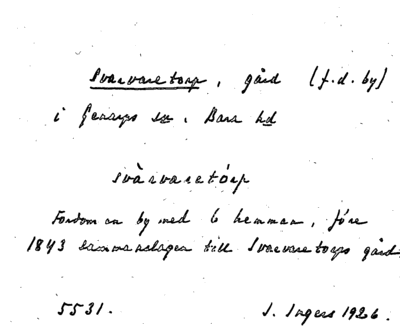 Svarvaretorp, gård (f.d. by)
i Genarps sn. Bara hd
svàrvaretórp
Fordom en by med 6 hemman, före
1843 sammanslagen till Svarvaretorps gård
5531. I. Ingers 1926.